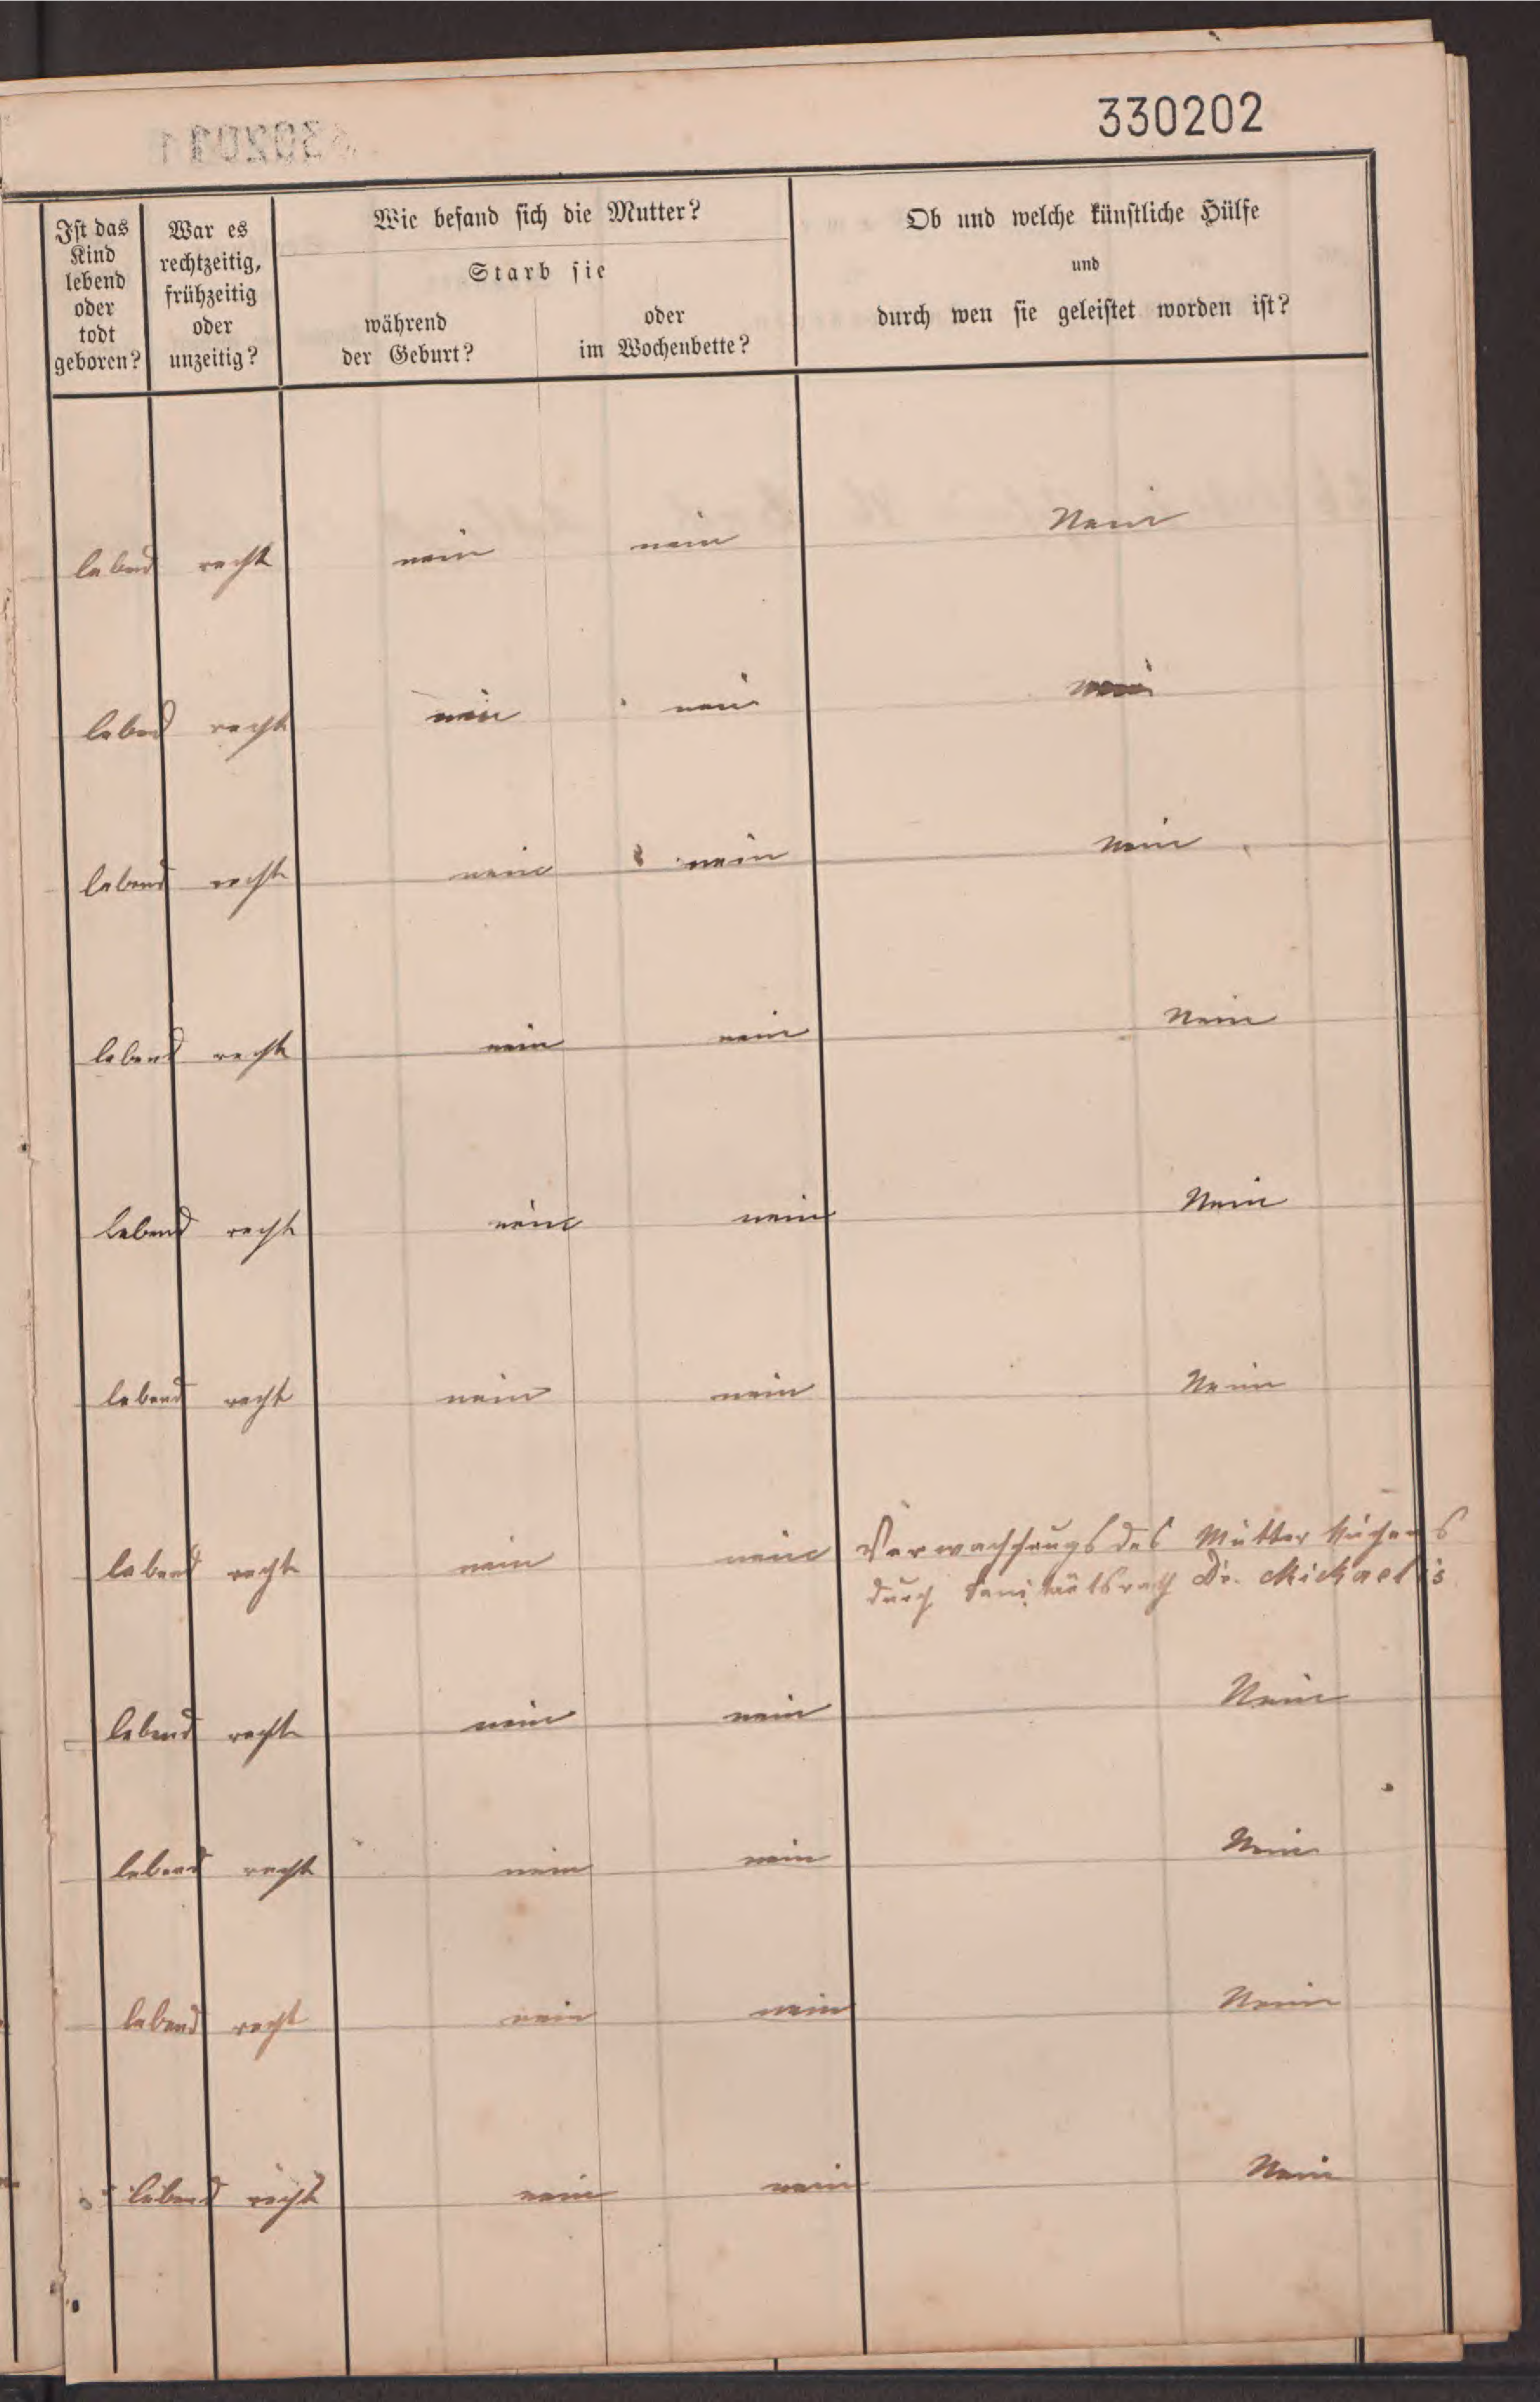 330202
Ist das
Kind
lebend
oder
todt
geboren?
War es
rechtzeitig,
frühzeitig
oder
unzeitig?
Wie befand sich die Mutter?
Starb sie
während
der Geburt?
oder
im Wochenbette?
Ob und welche künstliche Hülfe
und
durch wen sie geleistet worden ist?
lebend recht nein nein Nein
lebend recht nein nein nein
lebend recht nein nein Nein
lebend recht nein nein Nein
lebend recht nein nein Nein
lebend recht nein nein Nein
lebend recht nein nein Verwachsungs des Mutterkuchens
durch Sanitätsrath Dr. Michaelis
lebend recht nein nein Nein
lebend recht nein nein Nein
lebend recht nein nein Nein
lebend recht nein nein Nein